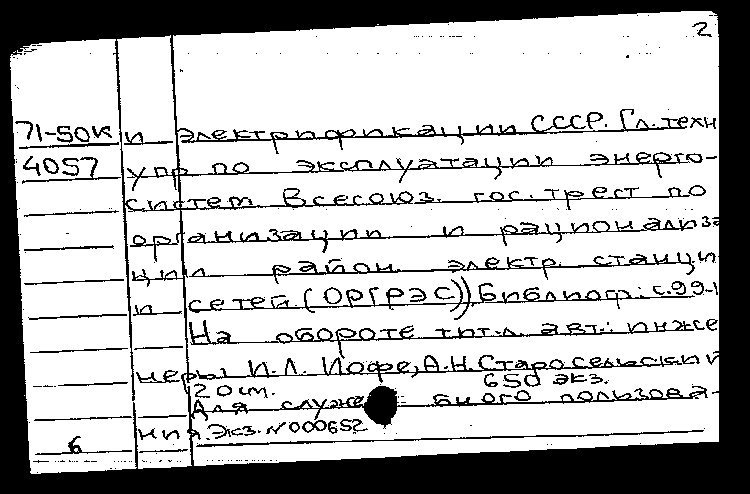 2
71-50к и электрификации СССР. Гл. техн
4057 упр по эксплуатации энерго-
систем. Всесоюз. гос. трест по
организации и рационализа
ции район. электр. станци
и сетей (ОРГРЭС)). Библиогр.: с.99-1
На обороте тит.л. авт.: инже
неры И.Л. Иофе, А.Н. Старосельский
20 см. 650 экз.
Для служебного пользова-
6 ния. Экз. N 000652